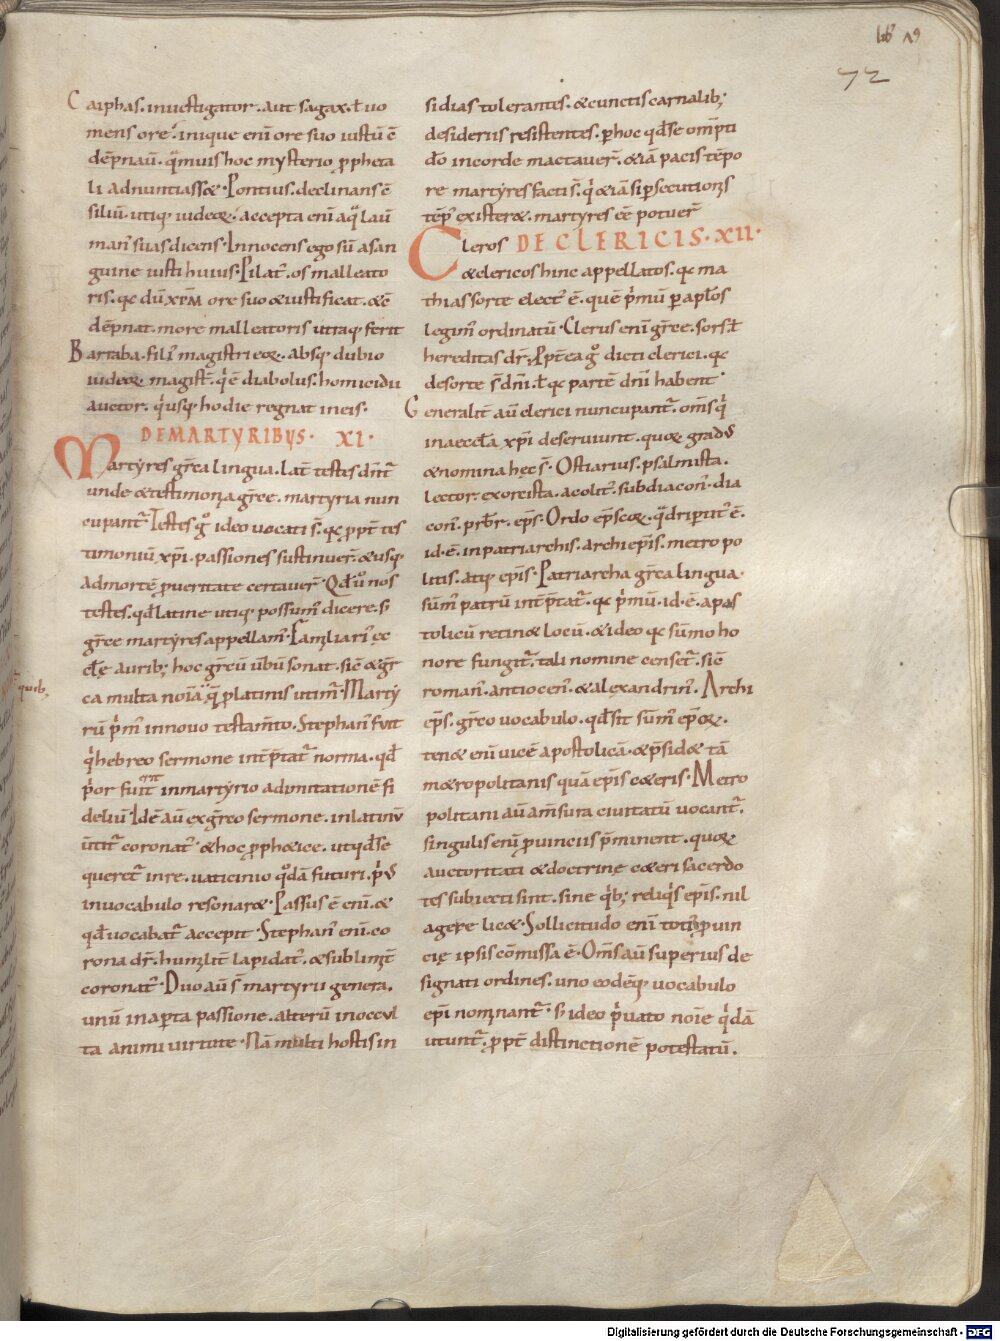 lib' 19
72
Caiphas. inuestigator. aut sagax. ł uo
mens ore. inique eni ore suo iustū ē
dēpnaū. quāuis hoc mysterio propheta
li adnuntiasset. Pontius. declinans ē
siliū. utiq; iudeoꝝ. accepta eni aqua laū
man' suas dicens. Innocens ego sū a san
guine iusti huius. Pilat'. os malleato
ris. qꝛ dū xp̄m ore suo & iustificat. & ē
dēpnat. more malleatoris utraq; ferit
Barraba. fili' magistri eoꝝ. absq; dubio
iudeoꝝ magist'. qui ē diabolus. homicidii
auctor. qui usq; hodie regnat in eis.
DE MARTYRIBUS. XI.
Martyres greca lingua. lat' testes dn̄r
unde & testimonia grece. martyria nun
cupant'. Testes g̊ ideo uocati s̄. qꝛ ppt' tes
timoniū xp̄i. passiones sustinuer̄. & usq;
ad mortē p ueritate certauer̄. Qd̄ ū nos
testes. qd̄ latine utiq; possum' dicere. s;
grece martyres appellam'. Familiari' ec
clę aurib; hoc grecū ubū sonat. sic̄ & gre
ca multa noīa quę p latinis utim'. Marty
quib;
rū prim' in nouo testam̄to. Stephan' fuit
qui hebreo sermone int'pretat' norma. qd̄
prior fuit in martyrio ad imitationē fi
deliū. Idē aū ex greco sermone. in latinū
uertit' coronat'. & hoc prophetice. ut qd̄ se
queret' in re. uaticinio quodā futuri. pri'
in uocabulo resonaret. Passus ē eni. &
qd̄ uocabat' accepit. Stephan' eni. co
rona dr̄. humilit' lapidat'. & sublimit'
coronat'. Duo aū s̄ martyrii genera.
unū in aperta passione. alterū in occul
ta animi uirtute. Nā multi hostis in
sidias tolerantes. & cunctis carnalib;
desideriis resistentes. p hoc qd̄ se om̄pti
dō in corde mactauer̄. etiā pacis tēpo
re martyres facti s̄. qui etiā si psecutionis
tēp' existeret. martyres eē potuer̄
Cleros DE CLERICIS. XII.
& clericos hinc appellatos. qꝛ ma
thias sorte elect' ē. quē primū p aplos
legim' ordinatū. Clerus eni grece. sors. ł
hereditas dr̄. Pptea g̊ dicti clerici. qꝛ
de sorte s̄ dn̄i. ł qꝛ partē dn̄i habent.
Generalit' aū clerici nuncupant'. om̄s qui
in aeccła xp̄i deseruiunt. quoꝝ grad'
& nomina hęc s̄. Ostiarius. psalmista.
lector. exorcista. acolit'. subdiacon'. dia
con'. prb̄r. ep̄s. Ordo ep̄scoꝝ. quadripertit' ē.
id. ē. in patriarchis. archiep̄is. metropo
litis. atq; ep̄is. Patriarcha greca lingua.
sūm' patrū int'pretat'. qꝛ primū. id. ē. apos
tolicū retinet locū. & ideo qꝛ sūmo ho
nore fungit'. tali nomine censet'. sic̄
roman'. antiocen'. & alexandrin'. Archi
ep̄s. greco uocabulo. qd̄ sit sūm' ep̄oꝝ.
tenet eni uicē apostolicā. & presidet tā
metropolitanis quā ep̄is ceteris. Metro
politani aū a m̄sura ciuitatū uocant'.
singulis eni prouinciis prēminent. quoꝝ
auctoritati & doctrine ceteri sacerdo
tes subiecti sint. sine quib; reliquis ep̄is. nil
agere licet. Sollicitudo eni toti' prouin
cię ipsis cōmissa ē. Om̄s aū superius de
signati ordines. uno eodēq; uocabulo
ep̄i nominant'. s; ideo priuato noīe quidā
utunt'. ppt' distinctionē potestatū.
Digitalisierung gefördert durch die Deutsche Forschungsgemeinschaft - DFG